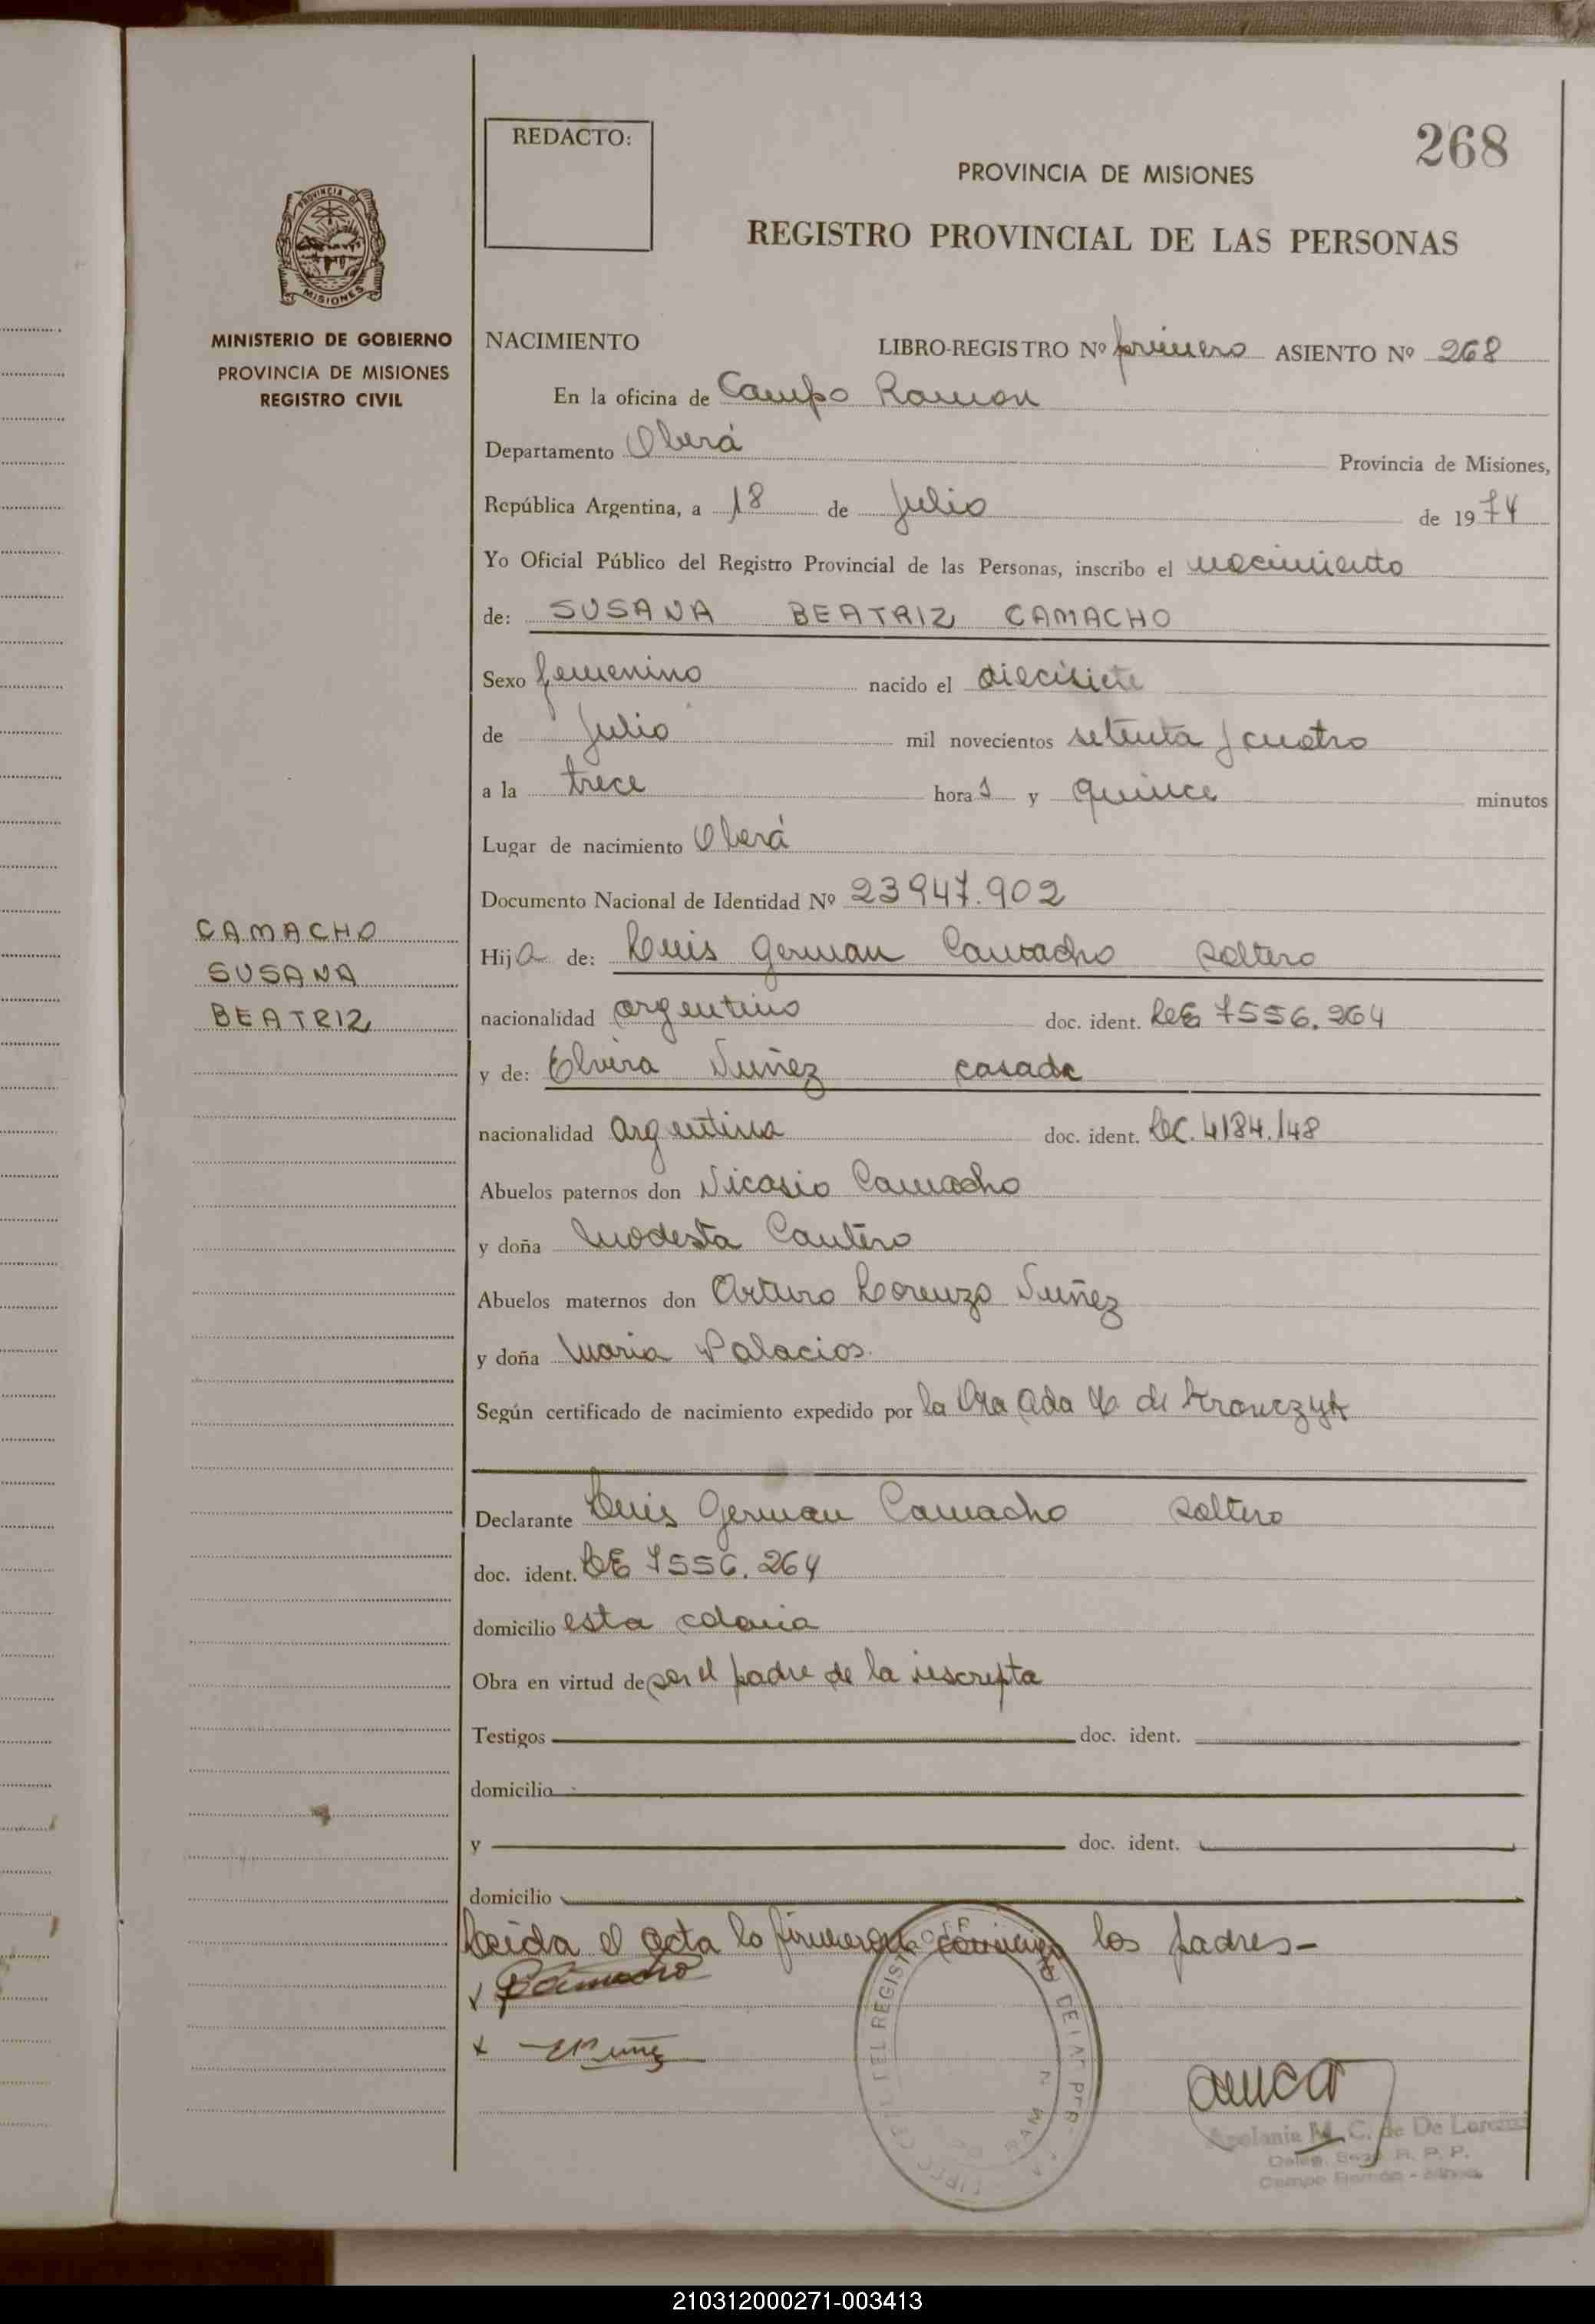 268
REDACTO:
PROVINCIA DE MISIONES
REGISTRO PROVINCIAL DE LAS PERSONAS
PROVINCIA DE
MISIONES
MINISTERIO DE GOBIERNO
PROVINCIA DE MISIONES
REGISTRO CIVIL
NACIMIENTO LIBRO-REGISTRO Nº primero ASIENTO Nº 268
En la oficina de Campo Ramon
Departamento Oberá Provincia de Misiones,
República Argentina, a 18 de Julio de 1974
Yo Oficial Público del Registro Provincial de las Personas, inscribo el nacimiento
de: SUSANA BEATRIZ CAMACHO
Sexo femenino nacido el diecisiete
de Julio mil novecientos setenta y cuatro
a la trece hora s y quince minutos
Lugar de nacimiento Oberá
Documento Nacional de Identidad Nº 23947.902
CAMACHO
SUSANA
BEATRIZ
Hija de: Luis German Camacho soltero
nacionalidad argentino doc. ident. LE 7556.264
y de: Elvira Nuñez casada
nacionalidad argentina doc. ident. LC. 4184.148
Abuelos paternos don Nicasio Camacho
y doña Modesta Cantero
Abuelos maternos don Arturo Lorenzo Nuñez
y doña Maria Palacios.
Según certificado de nacimiento expedido por la Dra Ada de Krawczyk
Declarante Luis German Camacho soltero
doc. ident. LE 7556.264
domicilio esta colonia
Obra en virtud de ser el padre de la inscripta
Testigos doc. ident.
domicilio
y doc. ident.
domicilio
Leida el acta la firmaron conmigo los padres-
x Camacho
x E Nuñez
Apolonia M. C. de De Lorenzi
Campo Ramón - Mnes.
210312000271-003413